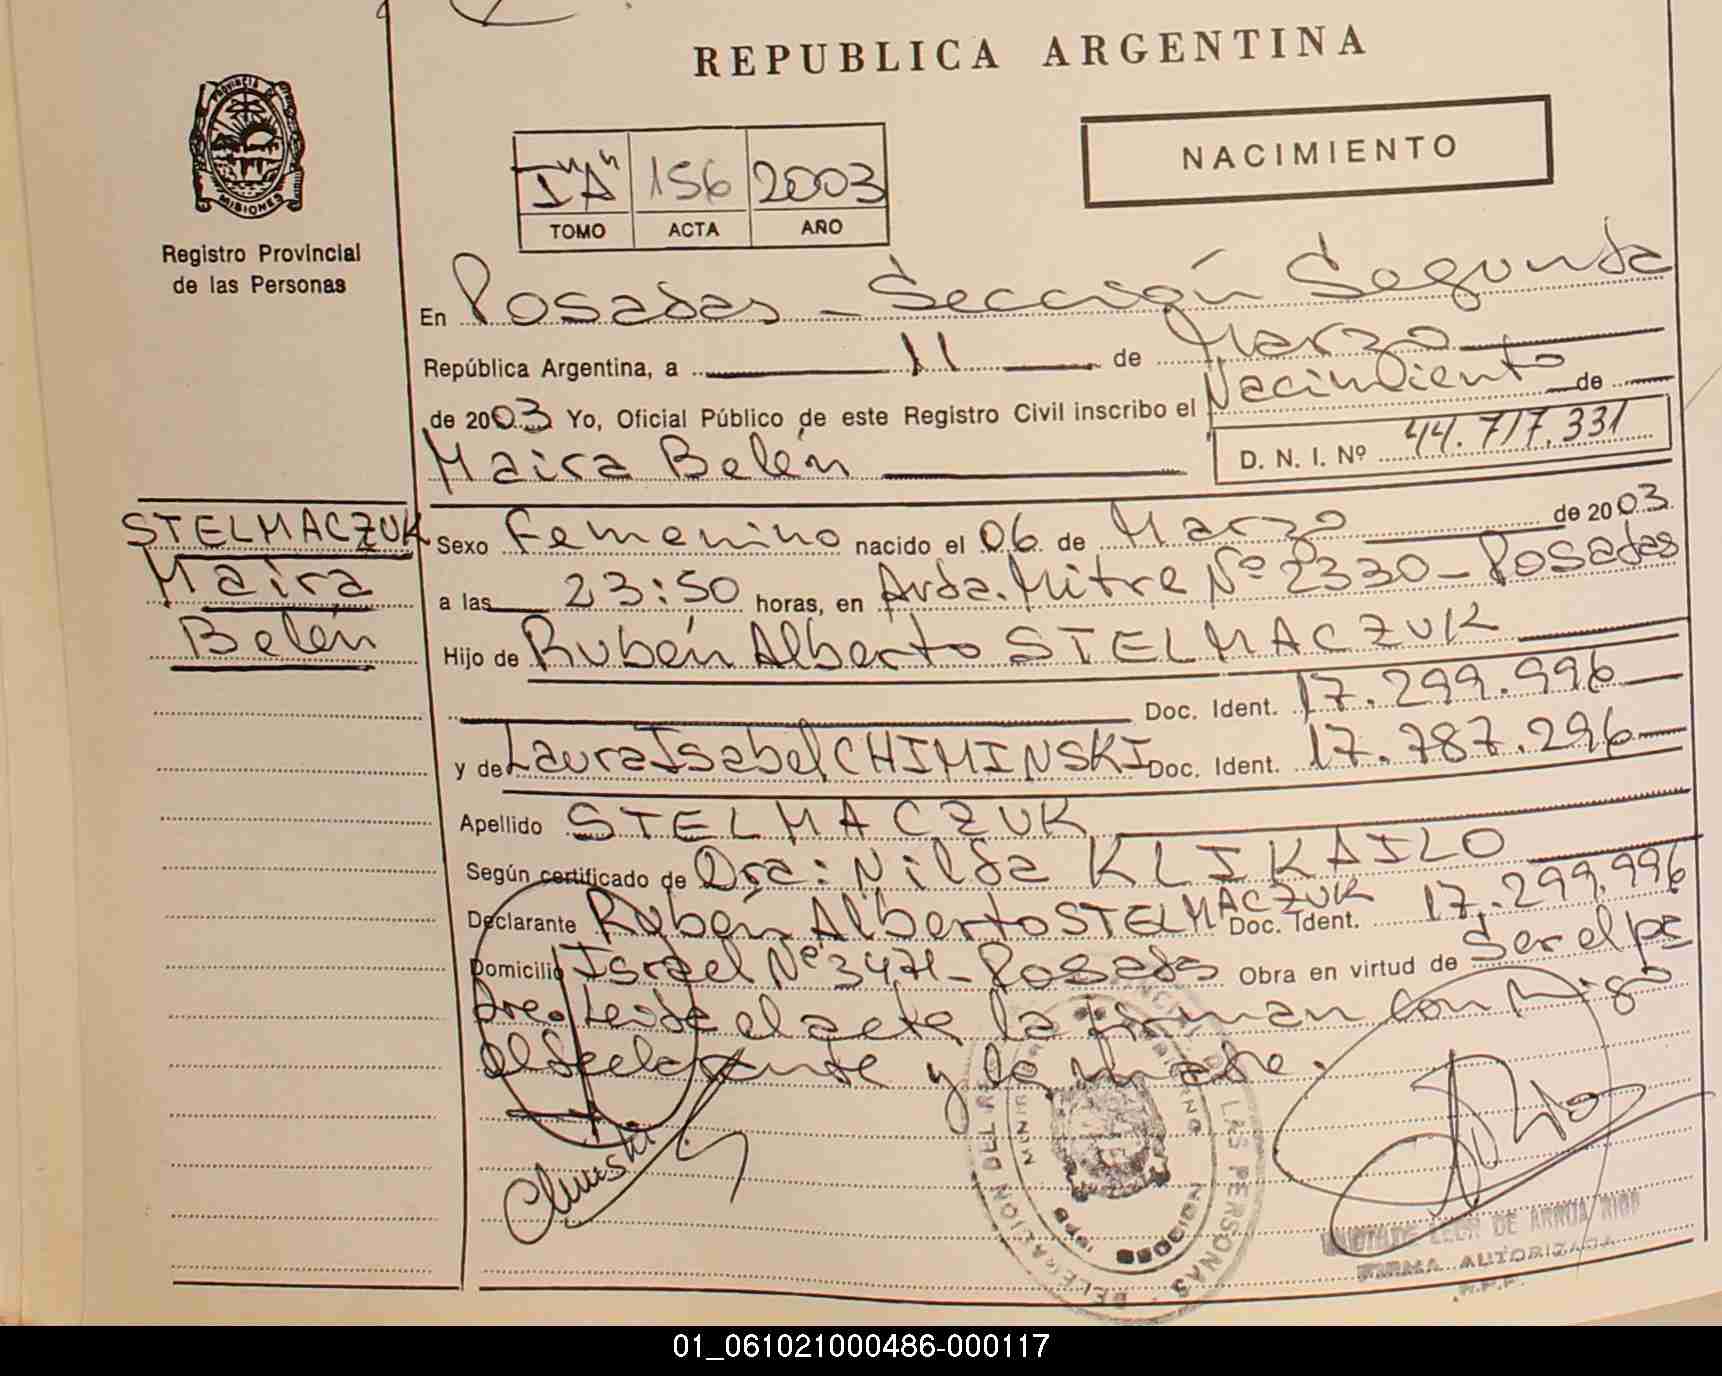 REPUBLICA ARGENTINA
PROVINCIA DE
MISIONES
Registro Provincial
de las Personas
NACIMIENTO
I "A" 156 2003
TOMO ACTA AÑO
En Posadas - Sección Segunda
República Argentina, a 11 de Marzo
de 2003 Yo, Oficial Público de este Registro Civil inscribo el Nacimiento de
Maira Belén
D. N. I. Nº 44.717.331
STELMACZUK
Maira
Belén
Sexo Femenino nacido el 06 de Marzo de 2003
a las 23:50 horas, en Avda. Mitre Nº 2330 - Posadas
Hijo de Rubén Alberto STELMACZUK
Doc. Ident. 17.299.996
y de Laura Isabel CHIMINSKI Doc. Ident. 17.787.296
Apellido STELMACZUK
Según certificado de Dra: Nilda KLIKAILO
Declarante Rubén Alberto STELMACZUK Doc. Ident. 17.299.996
Domicilio Israel Nº 3471 - Posadas Obra en virtud de Ser el pa
dre. Leída el acta la firman conmigo
el declarante y la madre.
DE LAS PERSONAS
MISIONES
FIRMA AUTORIZADA
01_061021000486-000117